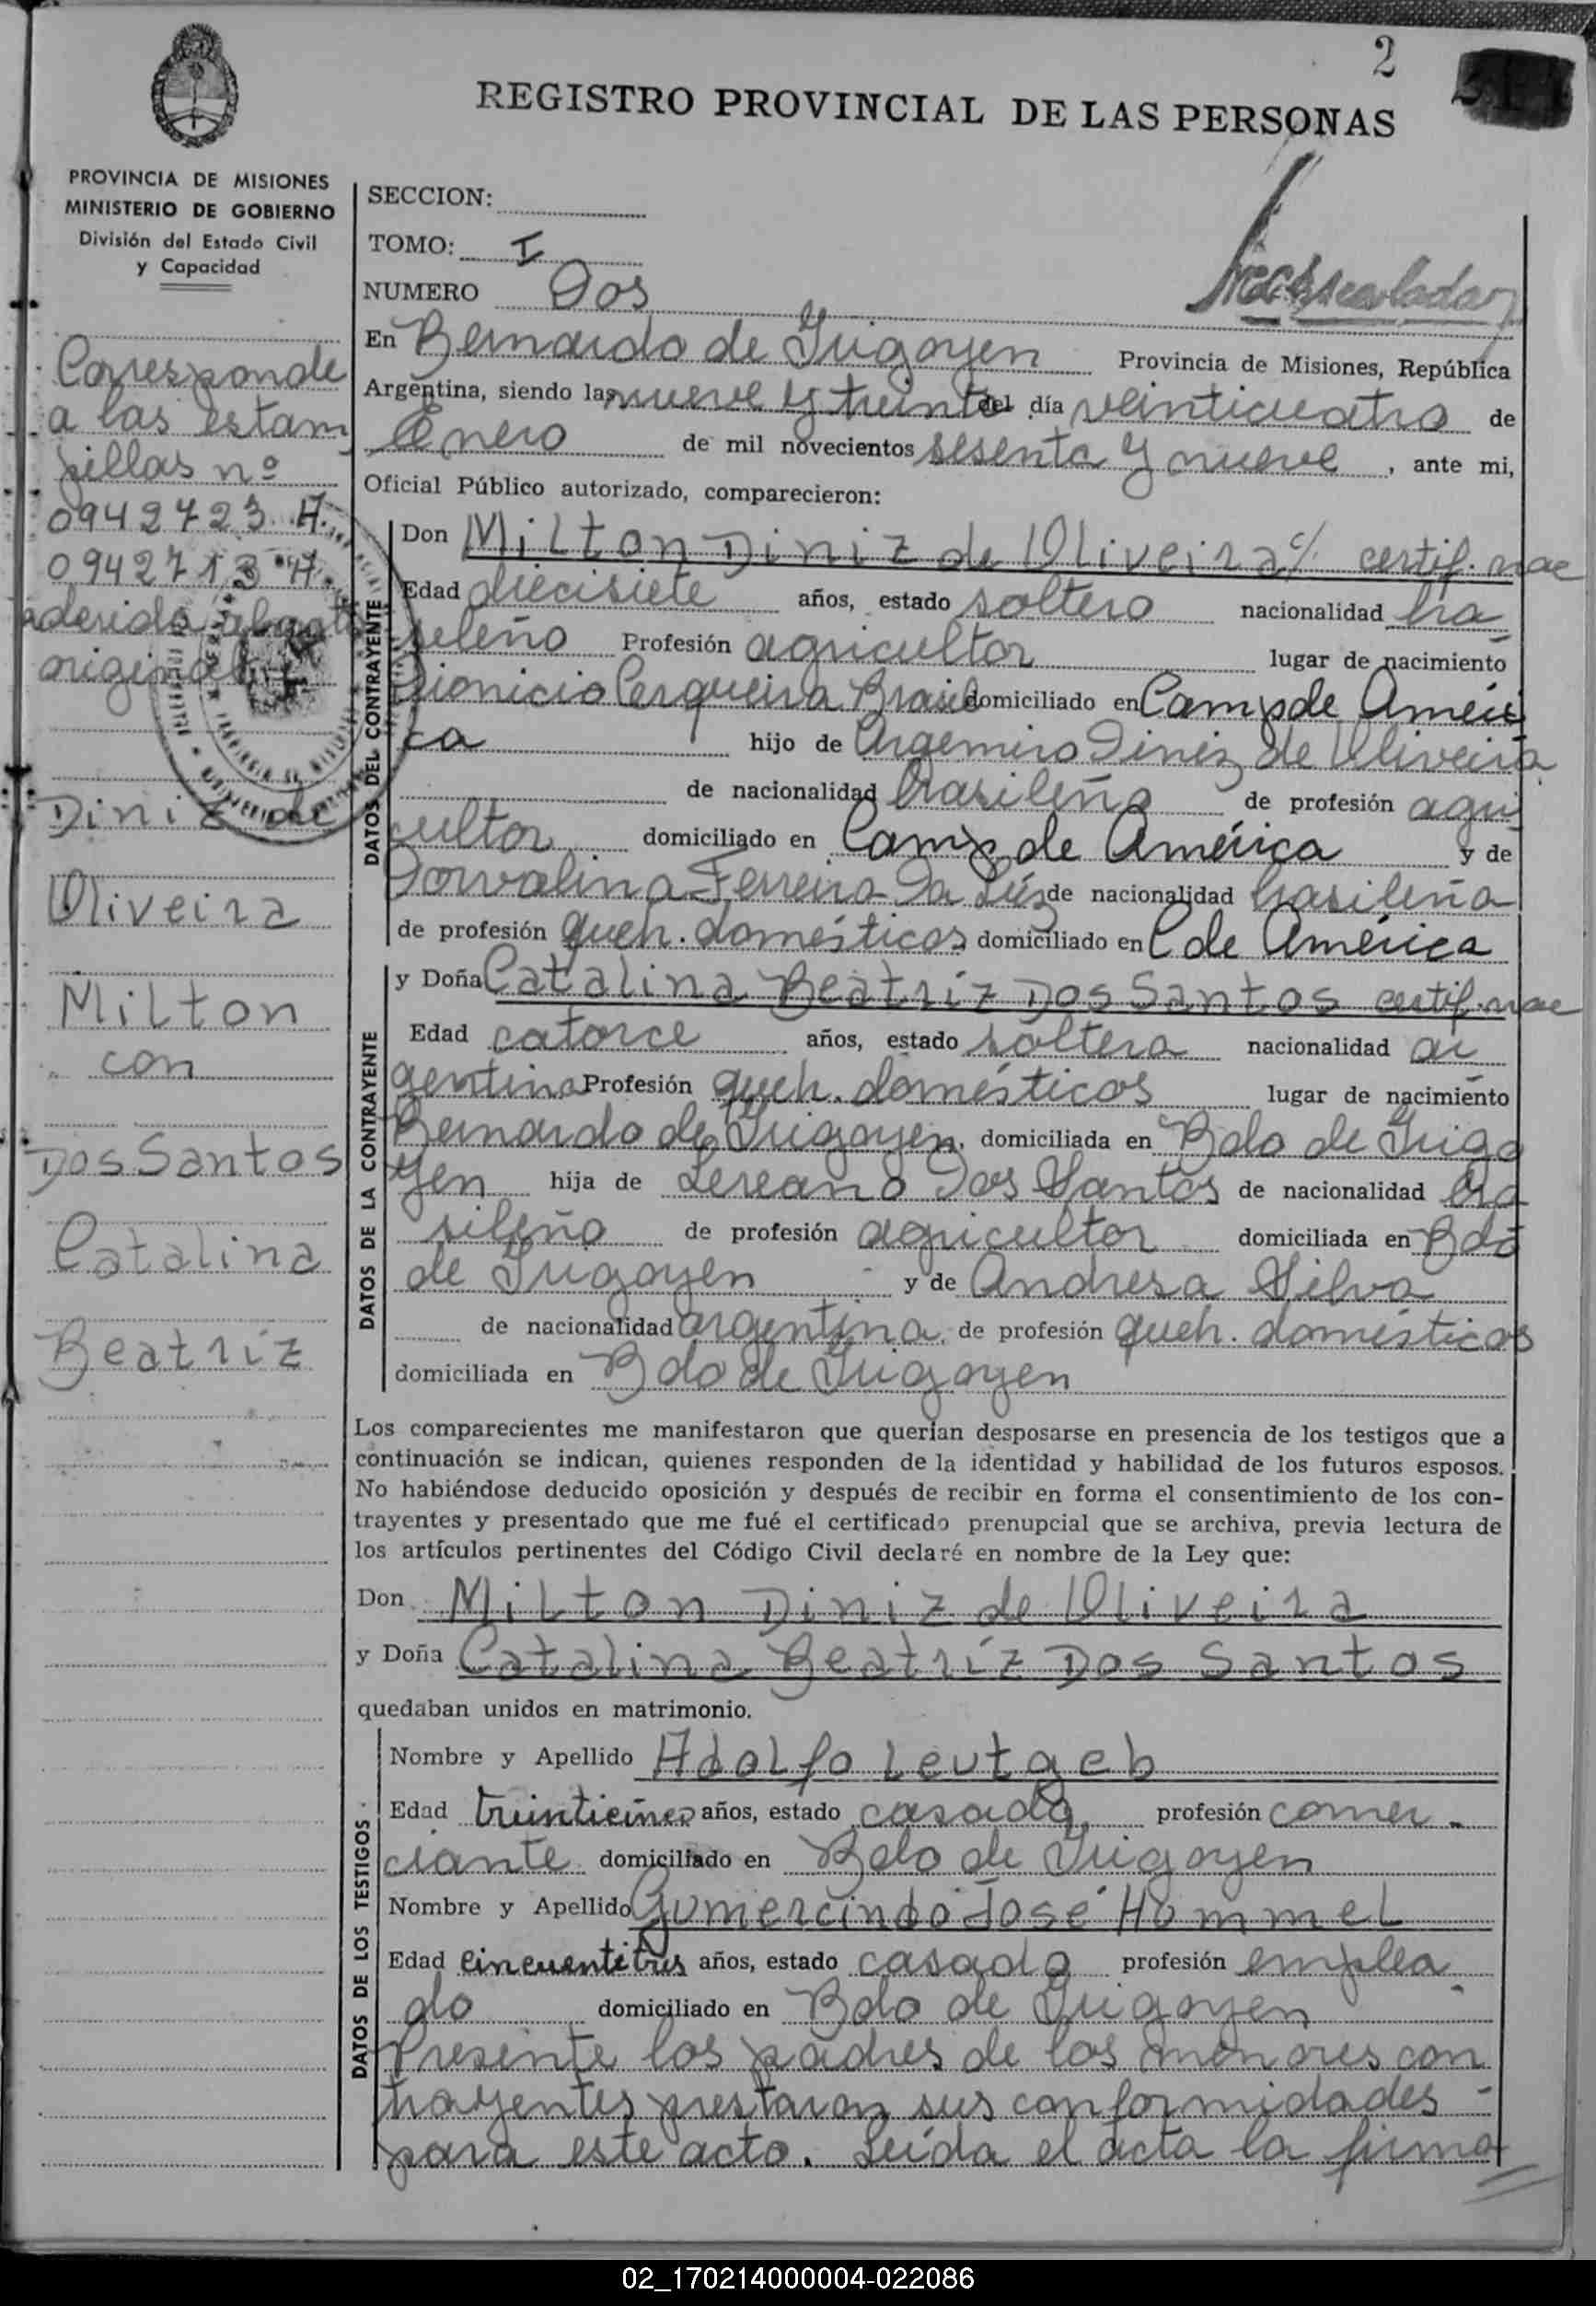 2
REGISTRO PROVINCIAL DE LAS PERSONAS
PROVINCIA DE MISIONES
MINISTERIO DE GOBIERNO
División del Estado Civil
y Capacidad
SECCION:
TOMO: I
NUMERO Dos
En Bernardo de Irigoyen Provincia de Misiones, República
Argentina, siendo las nueve y treinta del día veinticuatro de
Enero de mil novecientos sesenta y nueve, ante mi,
Oficial Público autorizado, comparecieron:
Corresponde
a las estam
pillas nº
0942723 A.
0942713 A.
original
Diniz de
Oliveira
Milton
con
Dos Santos
Catalina
Beatriz
DATOS DEL CONTRAYENTE
Don Milton Diniz de Oliveira c/. certif. nac
Edad diecisiete años, estado soltero nacionalidad bra
sileño Profesión agricultor lugar de nacimiento
Dionicio Cerqueira Brasil domiciliado en Camp de Améri
ca hijo de Argemiro Diniz de Oliveira
de nacionalidad brasileña de profesión agri
cultor domiciliado en Camp de América y de
Dorvalina Ferreira Da Luz de nacionalidad brasileña
de profesión queh. domésticos domiciliado en C de América
DATOS DE LA CONTRAYENTE
y Doña Catalina Beatríz Dos Santos certif. nac
Edad catorce años, estado soltera nacionalidad ar
gentina Profesión queh. domésticos lugar de nacimiento
Bernardo de Irigoyen, domiciliada en Bdo de Irigo
yen hija de Dos Santos de nacionalidad bra
sileño de profesión agricultor domiciliada en Bdo
de Irigoyen y de Andresa Silva
de nacionalidad argentina, de profesión queh. domésticos
domiciliada en Bdo de Irigoyen
Los comparecientes me manifestaron que querían desposarse en presencia de los testigos que a
continuación se indican, quienes responden de la identidad y habilidad de los futuros esposos.
No habiéndose deducido oposición y después de recibir en forma el consentimiento de los con-
trayentes y presentado que me fué el certificado prenupcial que se archiva, previa lectura de
los artículos pertinentes del Código Civil declaré en nombre de la Ley que:
Don Milton Diniz de Oliveira
y Doña Catalina Beatríz Dos Santos
quedaban unidos en matrimonio.
DATOS DE LOS TESTIGOS
Nombre y Apellido Adolfo Leutgeb
Edad treinticinco años, estado casado, profesión comer-
ciante domiciliado en Bdo de Irigoyen
Nombre y Apellido Gumercindo José Hommel
Edad cincuentitres años, estado casado profesión emplea
do domiciliado en Bdo de Irigoyen
Presente los padres de los menores con
trayentes prestaron sus conformidades -
para este acto. Leída el acta la firma
02_170214000004-022086